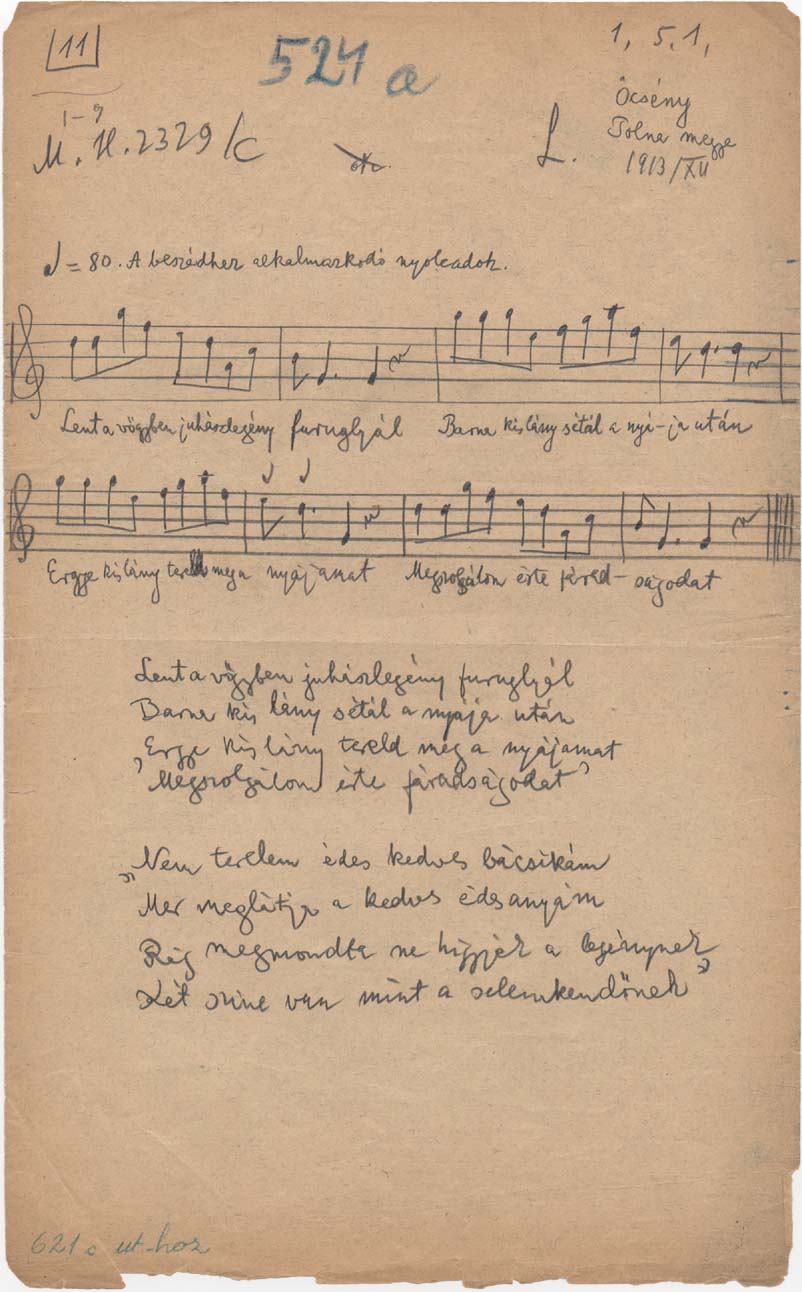 11
524 a
1, 5, 1,
Öcsény
Tolna megye
1913/XII
1-9
M. H. 2329/c
L.
♩ = 80. A beszédhez alkalmazkodó nyolcadok.
Lent a vögyben juhászlegény furuglyál Barna kis lány sétál a nyá-ja után
Ergye kis lány tereld meg a nyájamat Megszolgálom érte fárad-ságodat
Lent a vögyben juhászlegény furuglyál
Barna kis lány sétál a nyája után
„Ergye kis lány tereld meg a nyájamat
Megszolgálom érte fáradságodat”
„Nem terelem édes kedves bácsikám
Mer meglátja a kedves édesanyám
Rég megmondta ne higgyek a legénynek
Két színe van mint a selemkendőnek”
621 ut-hoz